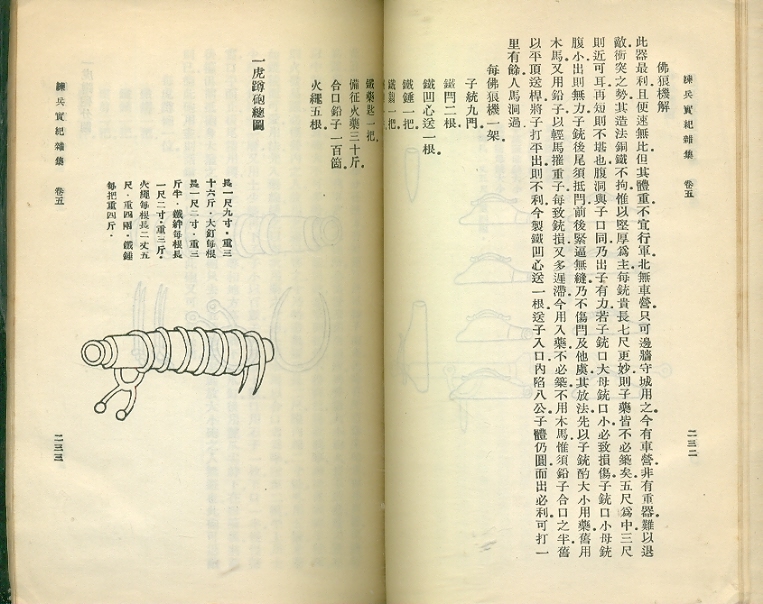 練兵實紀雜集　卷五
二三二
佛狼機解
此器最利且便速無比但其體重不宜行軍．北無車營．只可邊牆守城用之．今有車營．非有重器難以退
敵衝突之勢．其造法銅鐵不拘．惟以堅厚爲主．每銃貴長七尺更妙．則子藥皆不必築矣．五尺爲中．三尺
則近可耳．再短則不堪也．腹洞與子口同乃出子有力．若子銃口大母銃口小必致損傷．子銃口小母銃
腹小出則無力．子銃後尾須抵門前後緊逼無縫．乃不傷門及他虞．其放法先以子銃酌大小用藥．舊用
木馬．又用鉛子．以輕馬摧重子．每致銃損．又多遲滯．今用入藥不必築．不用木馬．惟須鉛子合口之半．舊
以平頂送桿將子打平出則不利．今製鐵凹心送一根．送子入口內陷八公．子體仍圓而出必利．可打一
里有餘．人馬洞過．
每佛狼機一架．
子銃九門．
鐵閂二根．
鐵凹心送一根．
鐵錘一把．
鐵剪一把．
鐵藥匙一把．
備征火藥三十斤．
合口鉛子一百箇．
火繩五根．
練兵實紀雜集　卷五
二三三
一虎蹲砲總圖
長一尺九寸．重三
十六斤．大釘每根
長一尺二寸．重三
斤半．鐵絆每根長
一尺二寸．重三斤．
火繩每根長二丈五
尺．重四兩．鐵錘
每把重四斤．